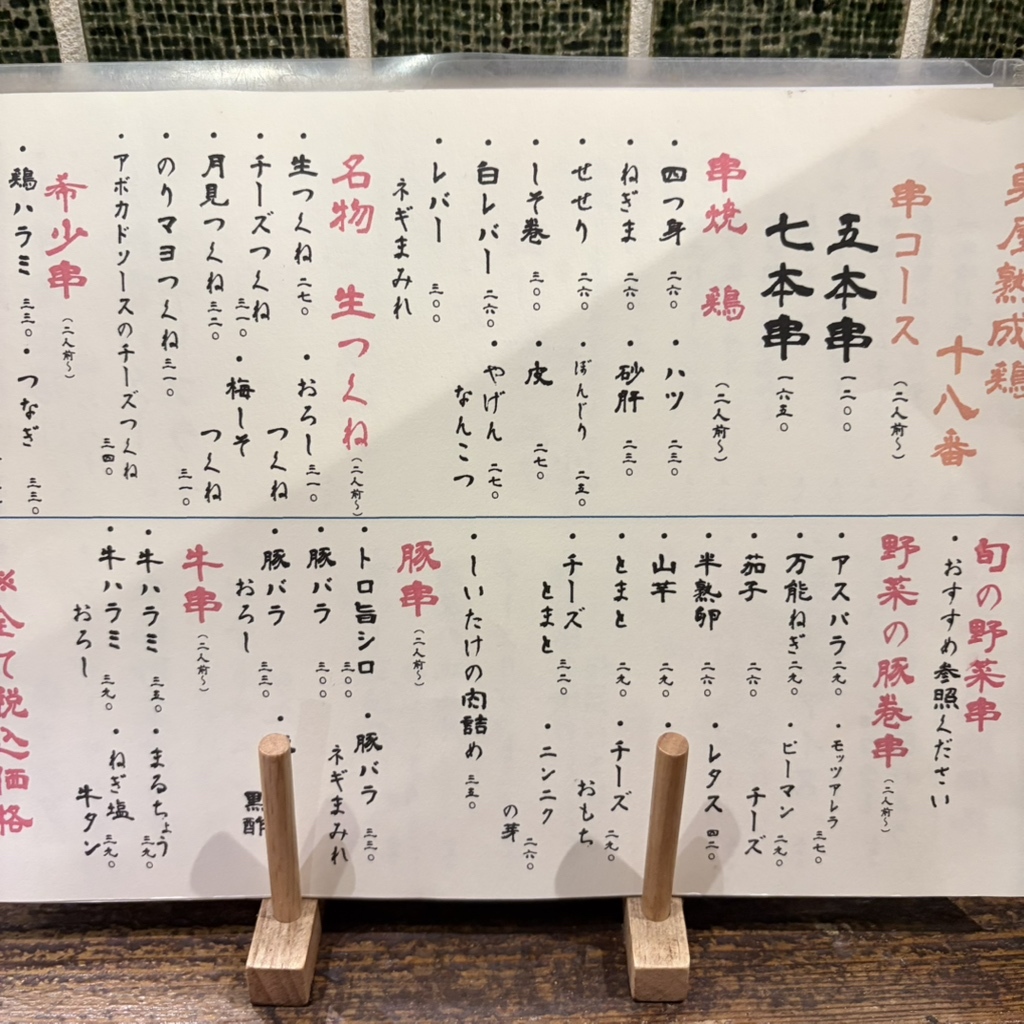 屋熟成鶏
十八番
串コース
(二人前〜)
五本串 一二〇〇
七本串 一六五〇
串焼 鶏
(二人前〜)
・四つ身 二六〇
・ハツ 二三〇
・ねぎま 二六〇
・砂肝 二三〇
・せせり 二六〇
・ぼんじり 二五〇
・しそ巻 三〇〇
・皮 二七〇
・白レバー 二六〇
・やげん
なんこつ 二七〇
・レバー
ネギまみれ 三〇〇
名物 生つくね
(二人前〜)
・生つくね 二七〇
・おろし
つくね 三一〇
・チーズつくね 三一〇
・梅しそ
つくね 三一〇
・月見つくね 三二〇
・のりマヨつくね 三一〇
・アボカドソースのチーズつくね 三四〇
希少串
(二人前〜)
・鶏ハラミ 三三〇
・つなぎ 三三〇
旬の野菜串
・おすすめ参照ください
野菜の豚巻串
(二人前〜)
・アスパラ 二九〇
・モッツアレラ
チーズ 三七〇
・万能ねぎ 二九〇
・ピーマン 二九〇
・茄子 二六〇
・半熟卵 二六〇
・レタス 四二〇
・山芋 二九〇
・とまと 二九〇
・チーズ
おもち 二九〇
・チーズ
とまと 三二〇
・ニンニク
の芽 二六〇
・しいたけの肉詰め 三五〇
豚串
(二人前〜)
・トロ旨シロ 三〇〇
・豚バラ
ネギまみれ 三三〇
・豚バラ 三〇〇
・豚バラ
おろし 三三〇
黒酢
牛串
(二人前〜)
・牛ハラミ 三五〇
・まるちょう 三九〇
・牛ハラミ
おろし 三九〇
・ねぎ塩
牛タン 三九〇
※全て税込価格